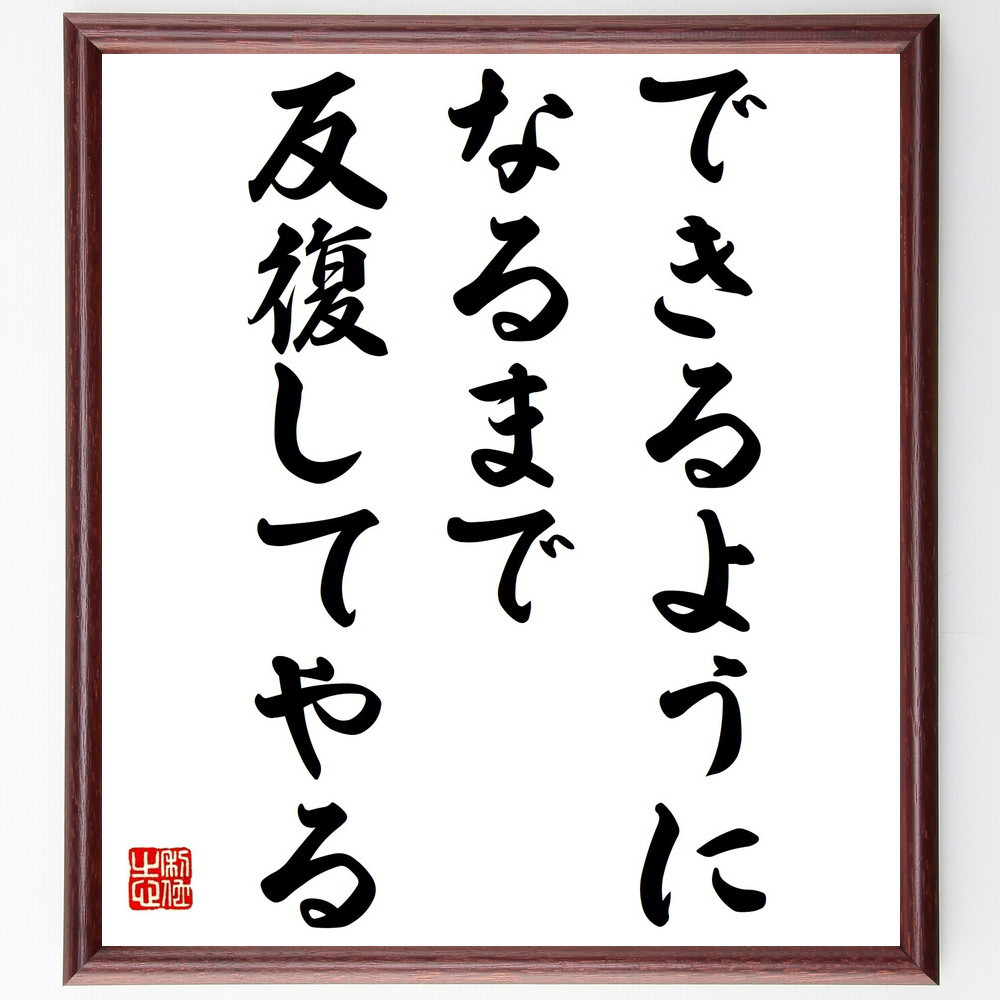 できるように
なるまで
反復してやる